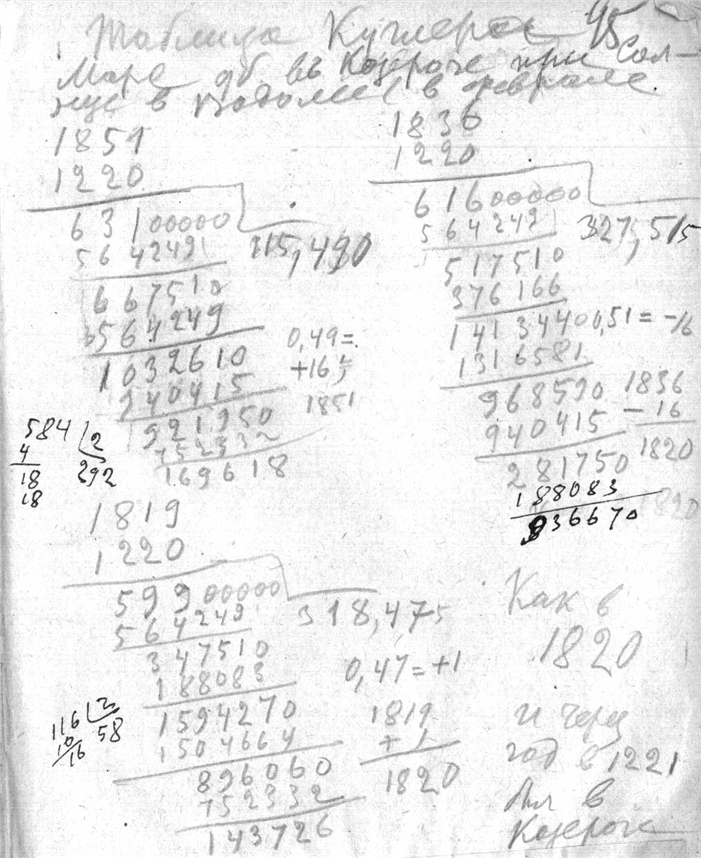 Таблица 45
Марс в Козероге при Сол-
нце в Водолее в феврале
1851
1220
631 00000
564249
315,490
667510
564249
1032610
940415
921950
752332
169618
0,49=
+16,5
1851
584 2
4 292
18
18
1836
1220
616 00000
564249
327,515
517510
376166
1413440
1316581
968590
940415
281750
188083
936670
0,51=-16
1836
-16
1820
1820
1819
1220
599 00000
564249
318,475
347510
188083
1594270
1504664
896060
752332
143726
0,47=+1
1819
+1
1820
116 2
10 58
16
Как в
1820
и через
год в 1221
был в
Козероге